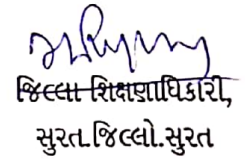 જિલ્લા શિક્ષણાધિકારી,
સુરત.જિલ્લો.સુરત